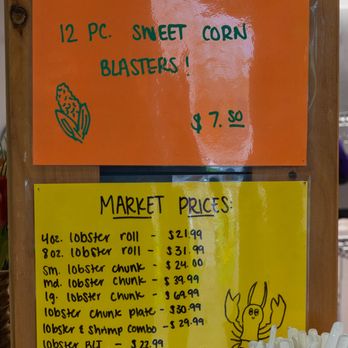 12 PC. SWEET CORN
BLASTERS!
$7.50
MARKET PRICES:
4oz. lobster roll - $21.99
8oz. lobster roll - $31.99
sm. lobster chunk - $24.00
md. lobster chunk - $39.99
lg. lobster chunk - $69.99
lobster chunk plate - $30.99
lobster & shrimp combo - $29.99
lobster BLT - $22.99